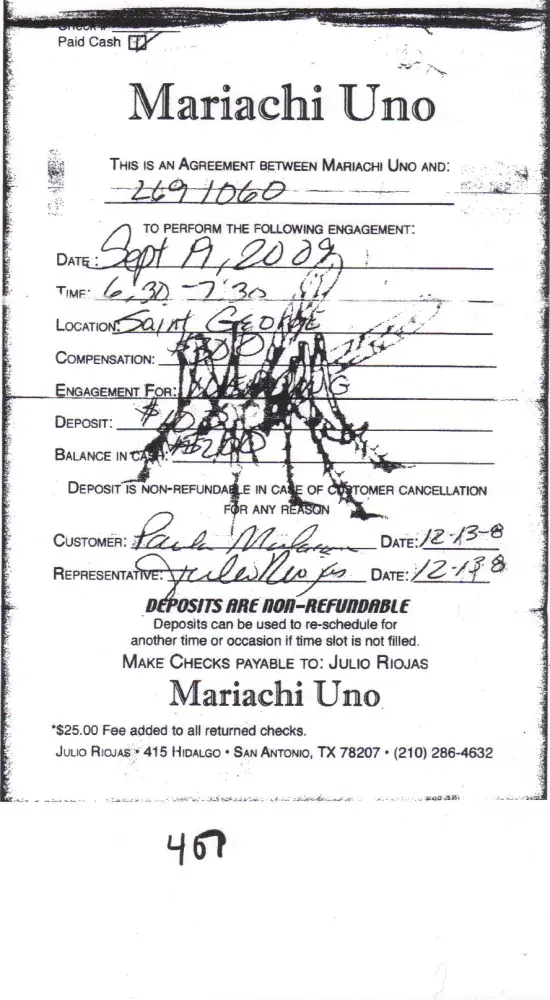 Paid Cash
Mariachi Uno
THIS IS AN AGREEMENT BETWEEN MARIACHI UNO AND:
269 1060
TO PERFORM THE FOLLOWING ENGAGEMENT:
DATE: Sept 19, 2009
TIME: 6:30 - 7:30
LOCATION: Saint GEORGE
COMPENSATION: $300
ENGAGEMENT FOR: WEDDING
DEPOSIT: $100
BALANCE IN CASH: $200
DEPOSIT IS NON-REFUNDABLE IN CASE OF CUSTOMER CANCELLATION
FOR ANY REASON
CUSTOMER: Paula DATE: 12-13-8
REPRESENTATIVE: Julio Riojas DATE: 12-13-8
DEPOSITS ARE NON-REFUNDABLE
Deposits can be used to re-schedule for
another time or occasion if time slot is not filled.
MAKE CHECKS PAYABLE TO: JULIO RIOJAS
Mariachi Uno
*$25.00 Fee added to all returned checks.
JULIO RIOJAS • 415 HIDALGO • SAN ANTONIO, TX 78207 • (210) 286-4632
467